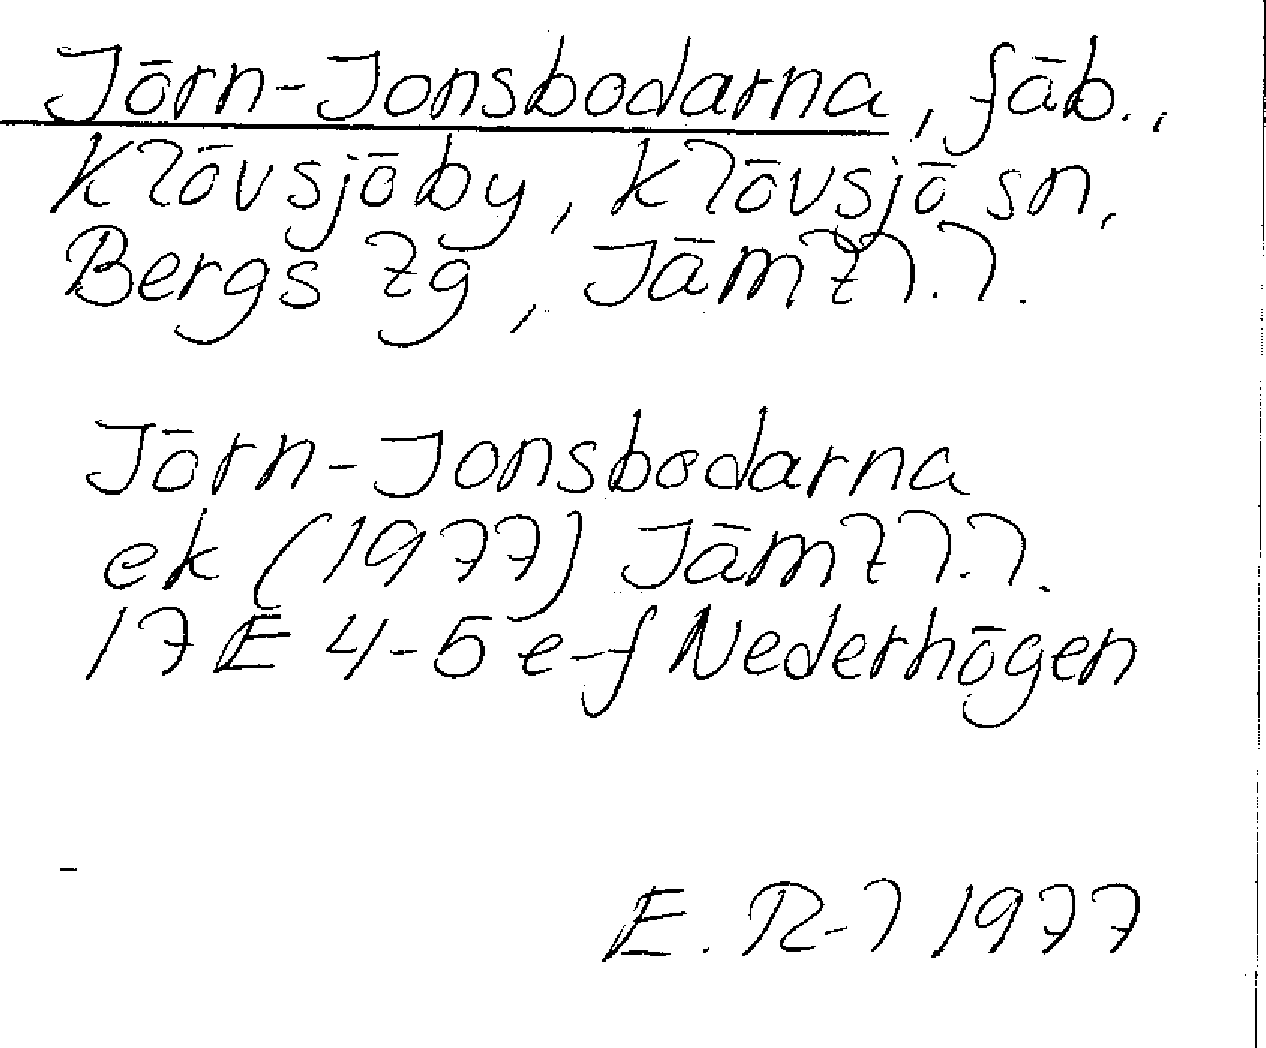 Jörn-Jonsbodarna, fäb.,
Klövsjöby, Klövsjö sn,
Bergs tg, Jämtl.l.
Jörn-Jonsbodarna
ek (1977) Jämtl.l.
17E 4-5 e-f Nederhögen
E. R-l 1977